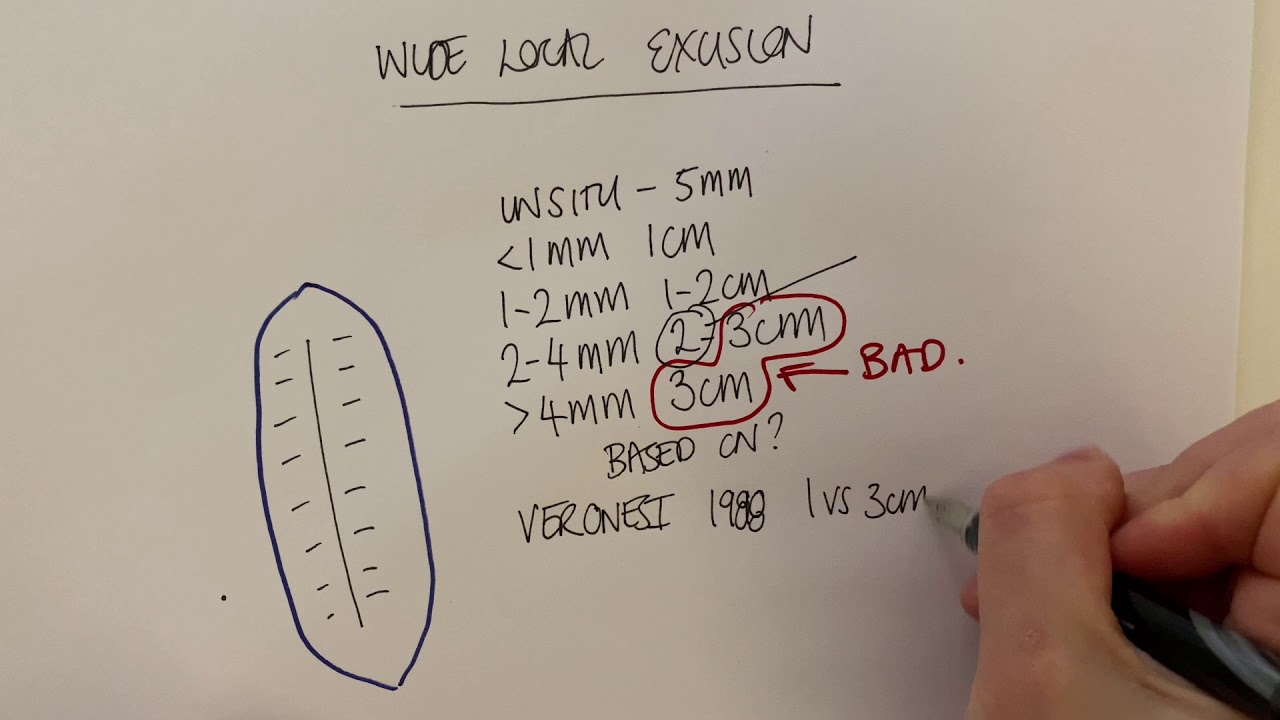 WIDE LOCAL EXCISION
INSITU - 5mm
<1mm 1cm
1-2mm 1-2cm
2-4mm 2-3cm
>4mm 3cm
BAD.
BASED ON?
VERONESI 1988 1 vs 3cm